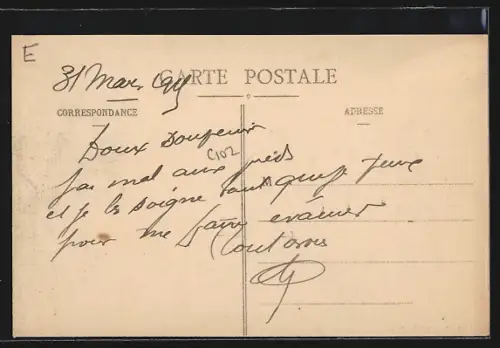 E
31 Mars
CARTE POSTALE
CORRESPONDANCE
ADRESSE
Doux Souvenir
C102
J'ai mal aux pieds
et je les soigne tant que je peux
pour me faire évacuer